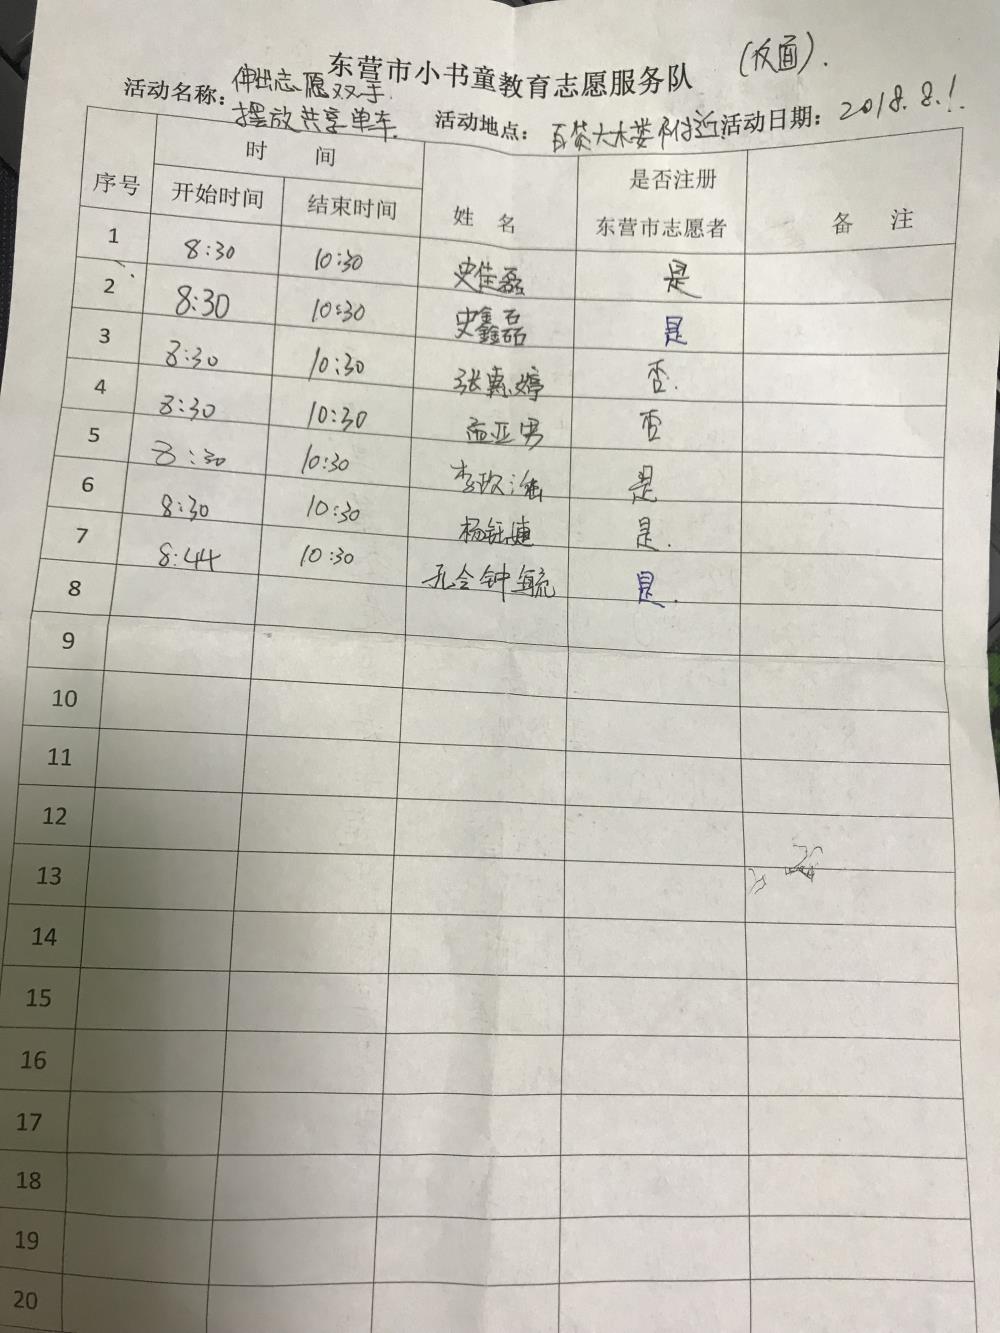 (反面).
东营市小书童教育志愿服务队
活动名称: 伸出志愿双手 摆放共享单车 活动地点: 百货大楼附近 活动日期: 2018.8.1
序号 时 间 姓 名 是否注册东营市志愿者 备 注
开始时间 结束时间
1 8:30 10:30 史佳磊 是
2 8:30 10:30 史鑫磊 是
3 8:30 10:30 张惠婷 否.
4 8:30 10:30 孟亚男 否
5 8:30 10:30 李玖 是
6 8:30 10:30 杨钰婕 是.
7 8:44 10:30 孔令钟毓 是.
8
9
10
11
12
13
14
15
16
17
18
19
20